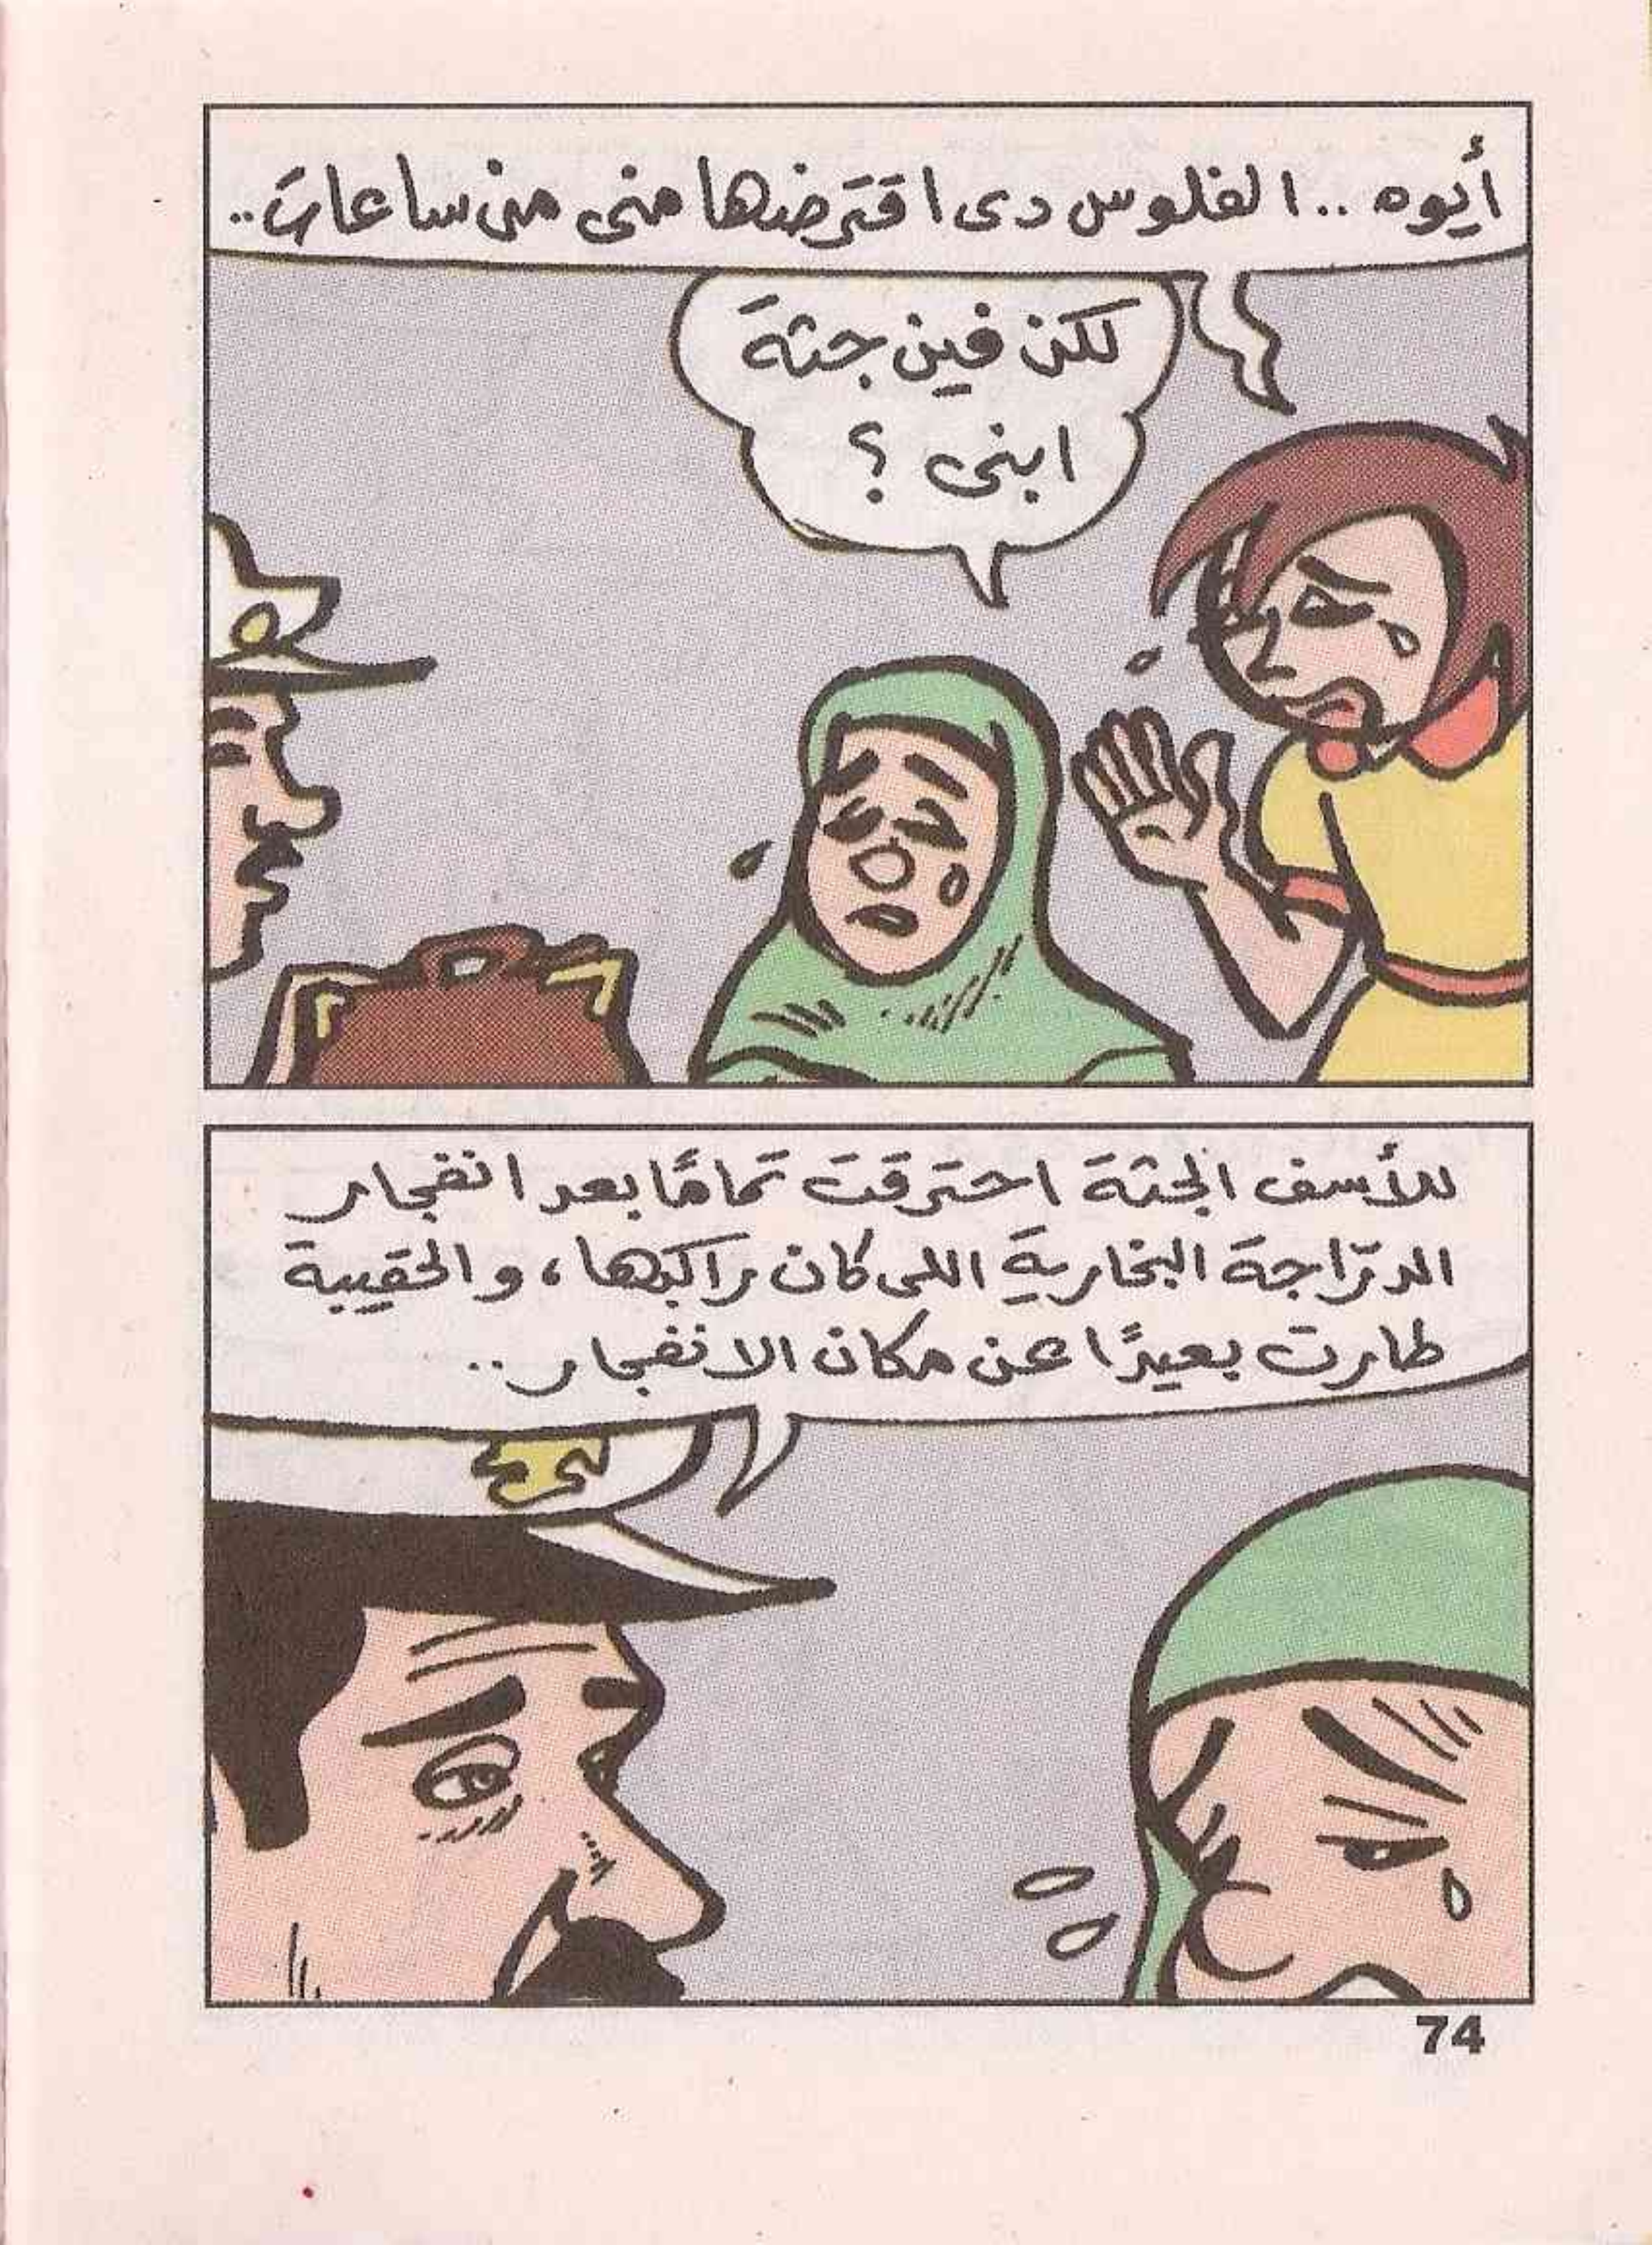 أيوه .. الفلوس دى اقترضها منى من ساعات ..
لكن فين جثة
ابنى ؟
للأسف الجثة احترقت تمامًا بعد انفجار
الدرّاجة البخارية اللى كان راكبها ، والحقيبة
طارت بعيدًا عن مكان الانفجار ..
74